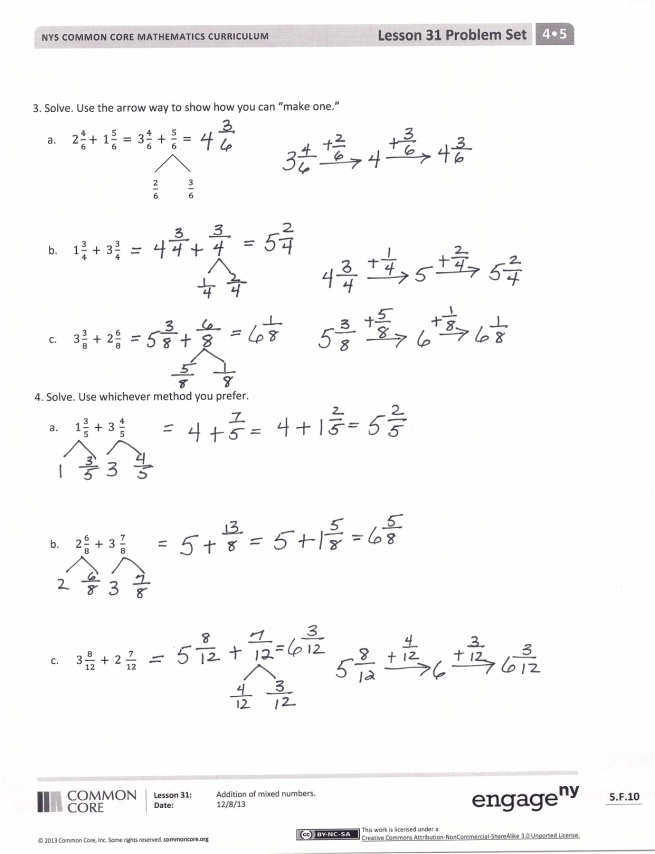 NYS COMMON CORE MATHEMATICS CURRICULUM Lesson 31 Problem Set 4•5
3. Solve. Use the arrow way to show how you can “make one.”
a. 2 4/6 + 1 5/6 = 3 4/6 + 5/6 = 4 3/6 3 4/6 +2/6 → 4 +3/6 → 4 3/6
2/6 3/6
b. 1 3/4 + 3 3/4 = 4 3/4 + 3/4 = 5 2/4 4 3/4 +1/4 → 5 +2/4 → 5 2/4
1/4 2/4
c. 3 3/8 + 2 6/8 = 5 3/8 + 6/8 = 6 1/8 5 3/8 +5/8 → 6 +1/8 → 6 1/8
5/8 1/8
4. Solve. Use whichever method you prefer.
a. 1 3/5 + 3 4/5 = 4 + 7/5 = 4 + 1 2/5 = 5 2/5
1 3/5 3 4/5
b. 2 6/8 + 3 7/8 = 5 + 13/8 = 5 + 1 5/8 = 6 5/8
2 6/8 3 7/8
c. 3 8/12 + 2 7/12 = 5 8/12 + 7/12 = 6 3/12 5 8/12 +4/12 → 6 +3/12 → 6 3/12
4/12 3/12
COMMON CORE
Lesson 31: Addition of mixed numbers.
Date: 12/8/13
engage ny
5.F.10
© 2013 Common Core, Inc. Some rights reserved. commoncore.org
cc BY-NC-SA
This work is licensed under a
Creative Commons Attribution-NonCommercial-ShareAlike 3.0 Unported License.